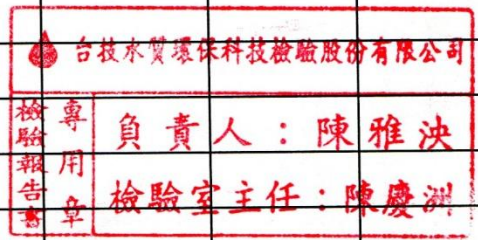 台技水質環保科技檢驗股份有限公司
檢驗報告書
專用章
負責人：陳雅泱
檢驗室主任：陳慶洲